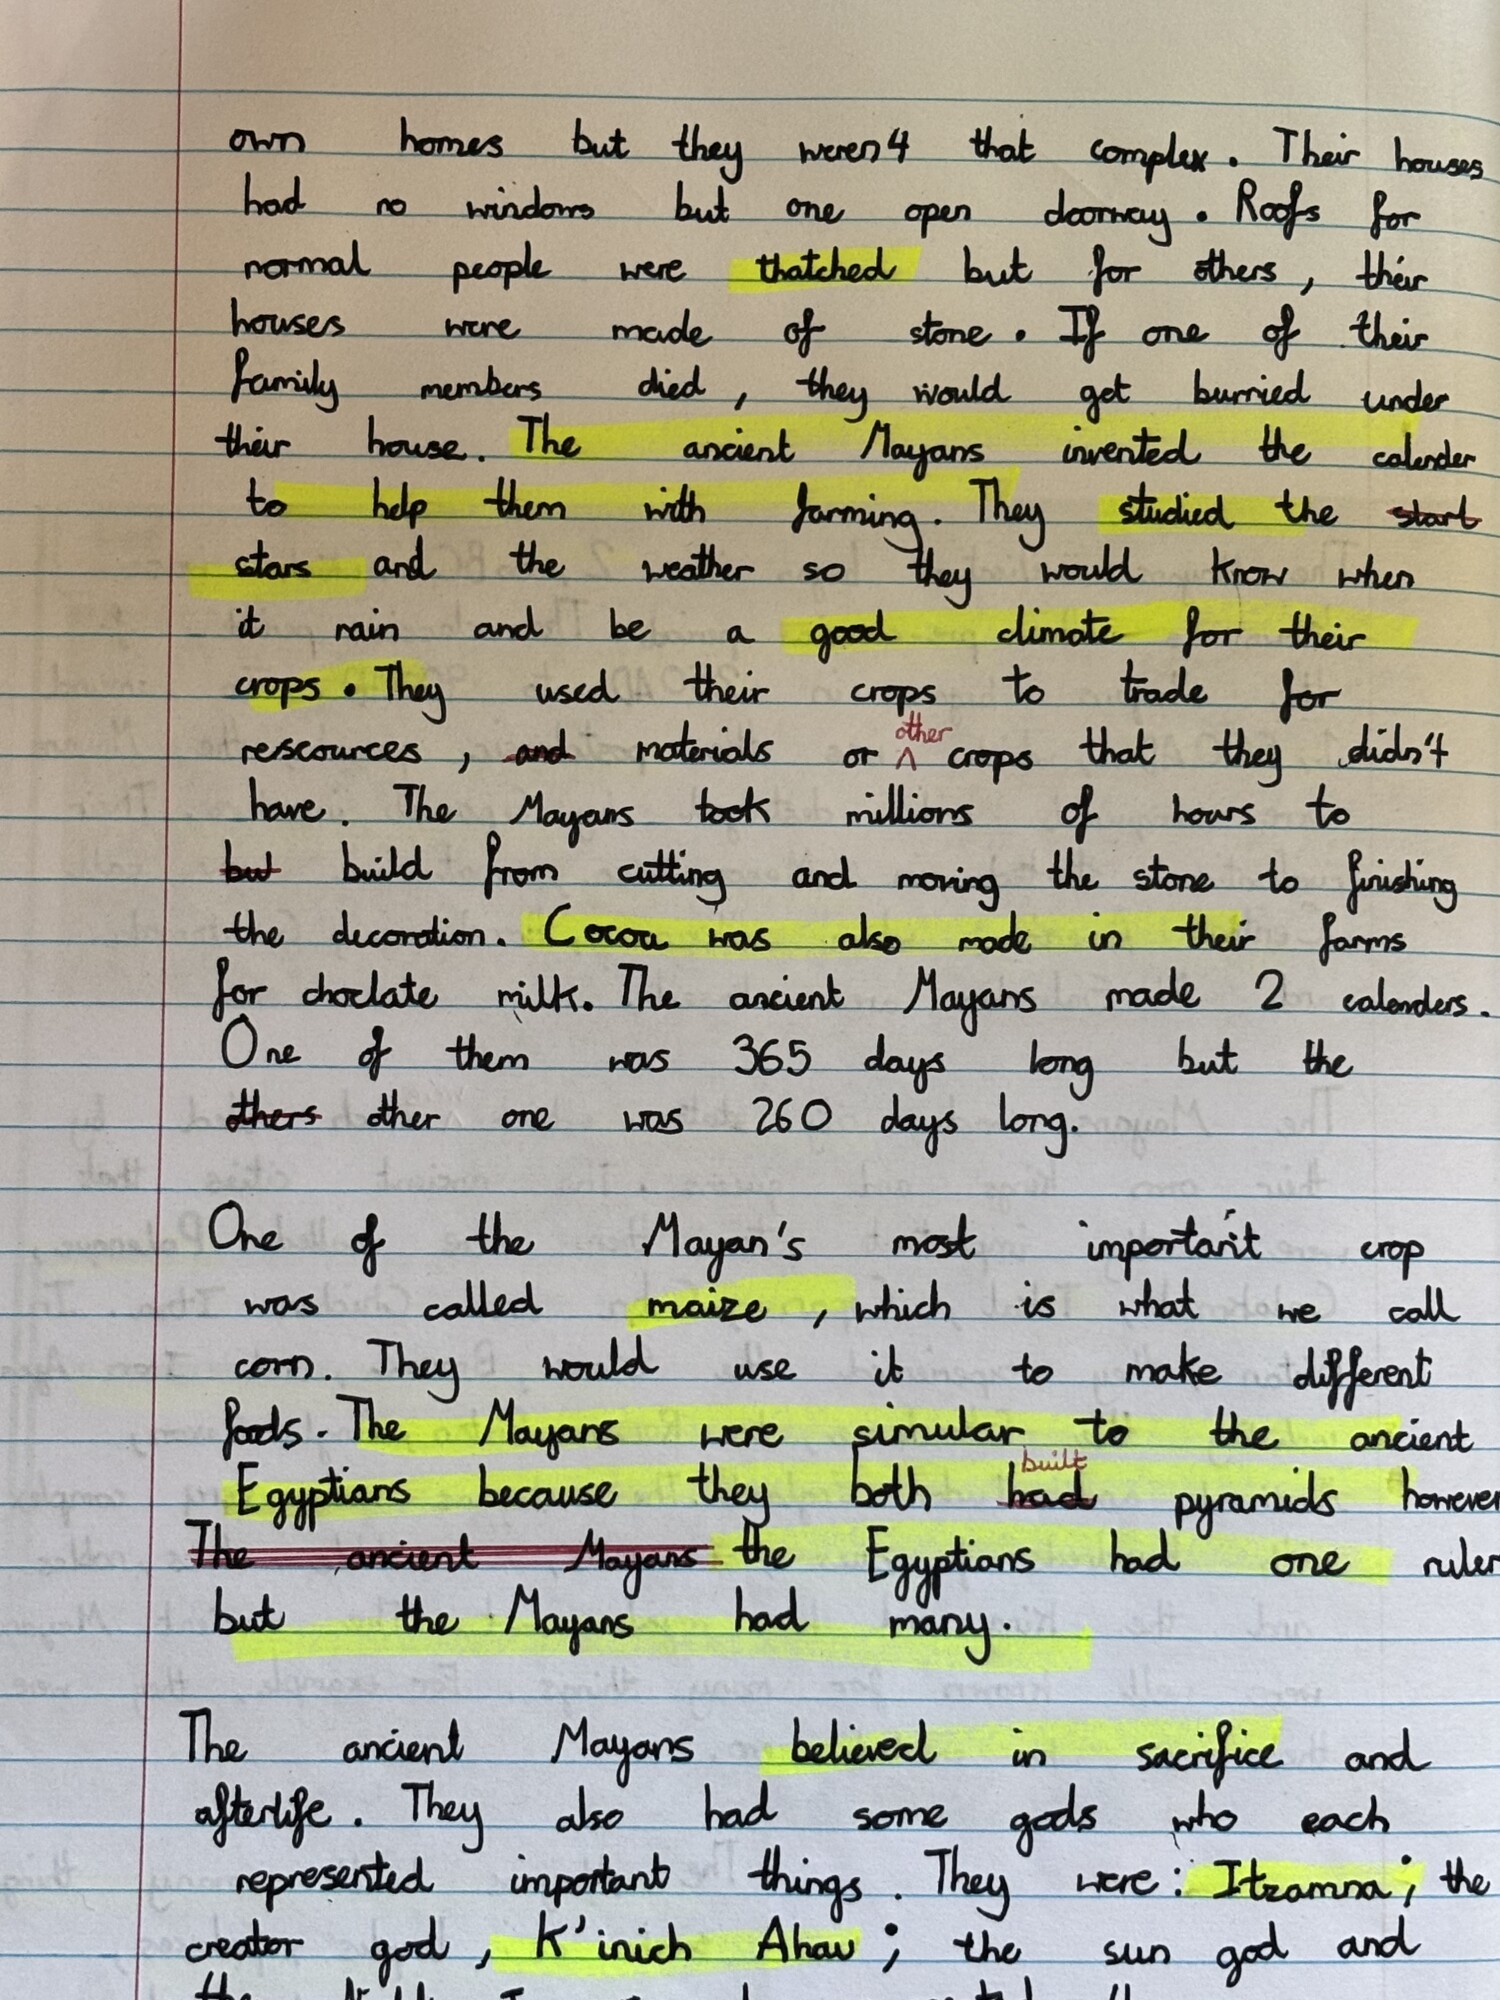 own homes but they weren't that complex. Their houses
had no windows but one open doorway. Roofs for
normal people were thatched but for others, their
houses were made of stone. If one of their
family members died, they would get burried under
their house. The ancient Mayans invented the calender
to help them with farming. They studied the start
stars and the weather so they would know when
it rain and be a good climate for their
crops. They used their crops to trade for
rescources, and materials or other crops that they didn't
have. The Mayans took millions of hours to
but build from cutting and moving the stone to finishing
the decoration. Cocoa was also made in their farms
for choclate milk. The ancient Mayans made 2 calenders.
One of them was 365 days long but the
others other one was 260 days long.
One of the Mayan's most important crop
was called maize, which is what we call
corn. They would use it to make different
foods. The Mayans were simular to the ancient
Egyptians because they both had built pyramids however
The ancient Mayans the Egyptians had one ruler
but the Mayans had many.
The ancient Mayans believed in sacrifice and
afterlife. They also had some gods who each
represented important things. They were: Itzamna; the
creator god, K'inich Ahau; the sun god and